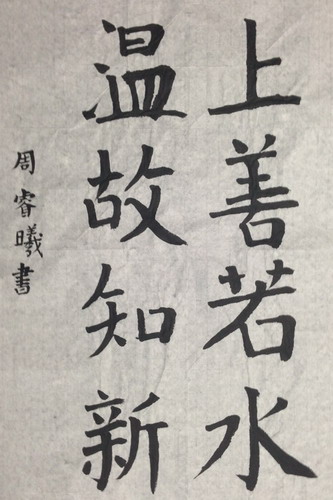 上善若水
温故知新
周睿曦書